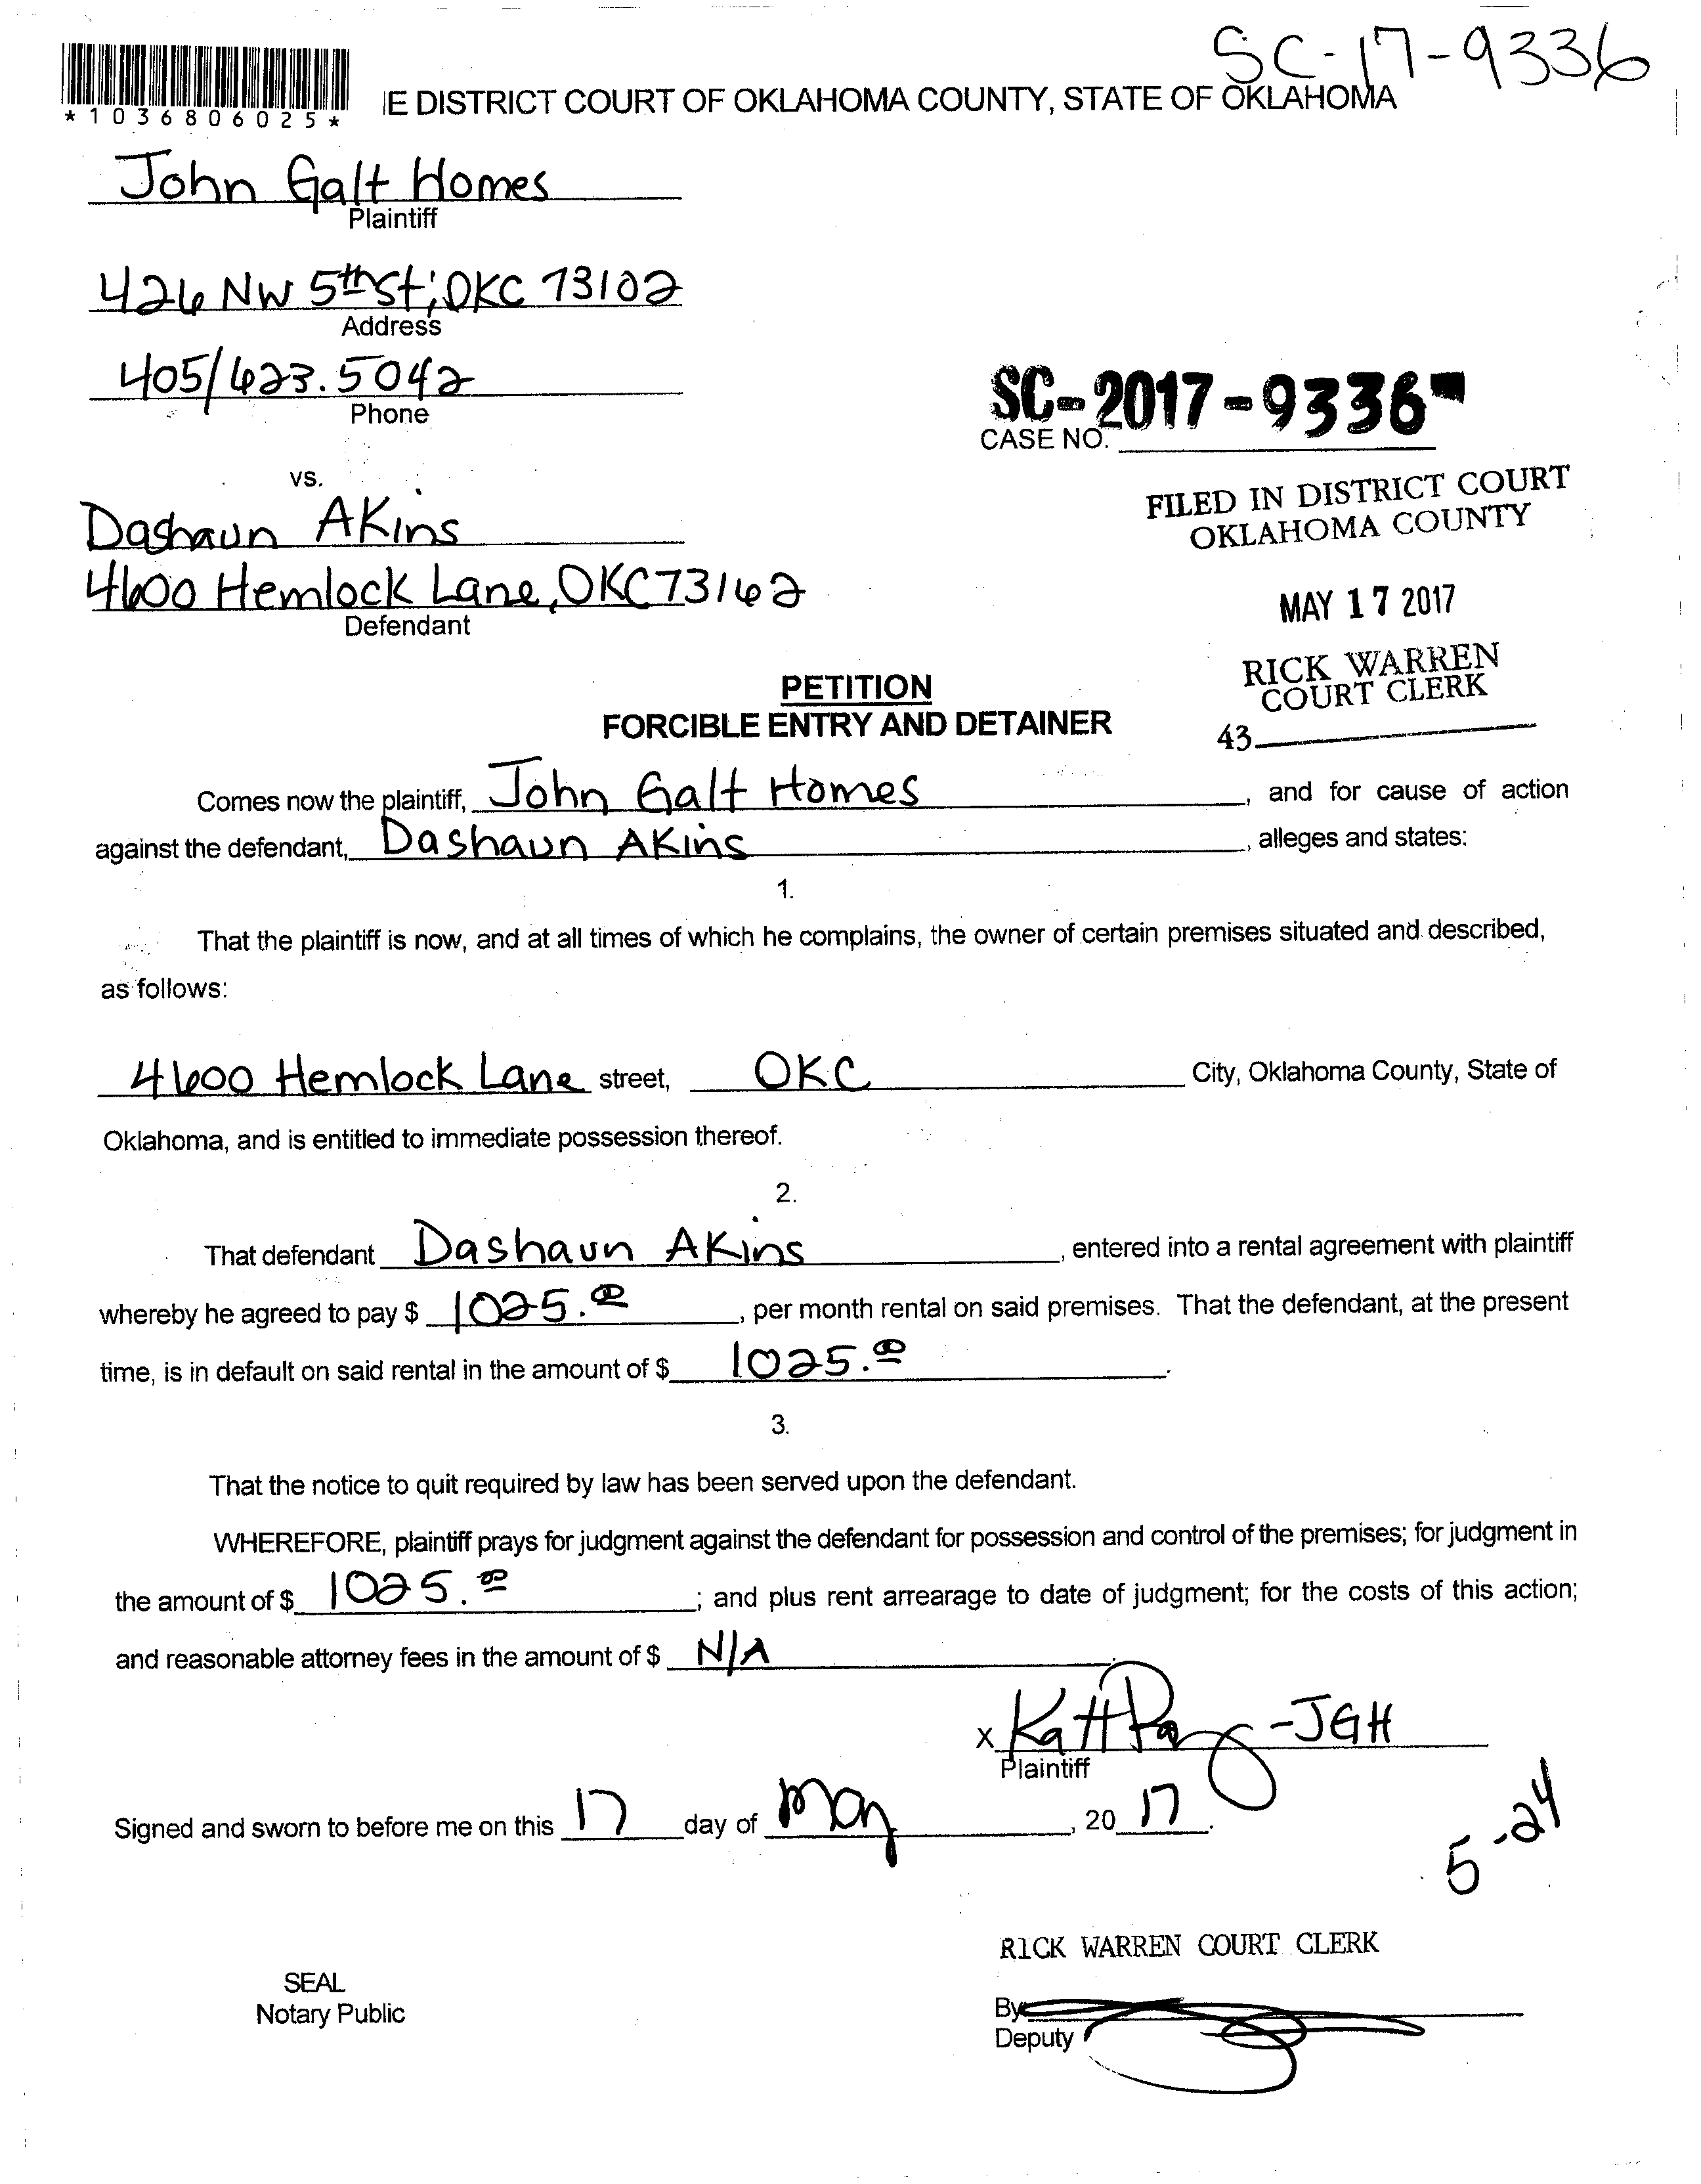 SC-17-9336
*1036806025*
E DISTRICT COURT OF OKLAHOMA COUNTY, STATE OF OKLAHOMA
John Galt Homes
Plaintiff
426 NW 5th St; OKC 73102
Address
405/623.5042
Phone
SC-2017-9336
CASE NO.
vs.
FILED IN DISTRICT COURT
OKLAHOMA COUNTY
Dashaun AKins
4600 Hemlock Lane, OKC 73162
Defendant
MAY 17 2017
RICK WARREN
COURT CLERK
43
PETITION
FORCIBLE ENTRY AND DETAINER
Comes now the plaintiff, John Galt Homes, and for cause of action
against the defendant, Dashaun AKins, alleges and states:
1.
That the plaintiff is now, and at all times of which he complains, the owner of certain premises situated and described,
as follows:
4600 Hemlock Lane street, OKC City, Oklahoma County, State of
Oklahoma, and is entitled to immediate possession thereof.
2.
That defendant Dashaun AKins, entered into a rental agreement with plaintiff
whereby he agreed to pay $ 1025.00, per month rental on said premises. That the defendant, at the present
time, is in default on said rental in the amount of $ 1025.00.
3.
That the notice to quit required by law has been served upon the defendant.
WHEREFORE, plaintiff prays for judgment against the defendant for possession and control of the premises; for judgment in
the amount of $ 1025.00; and plus rent arrearage to date of judgment; for the costs of this action;
and reasonable attorney fees in the amount of $ N/A.
X -JGH
Plaintiff
Signed and sworn to before me on this 17 day of May, 20 17.
5-24
RICK WARREN COURT CLERK
SEAL
Notary Public
By
Deputy